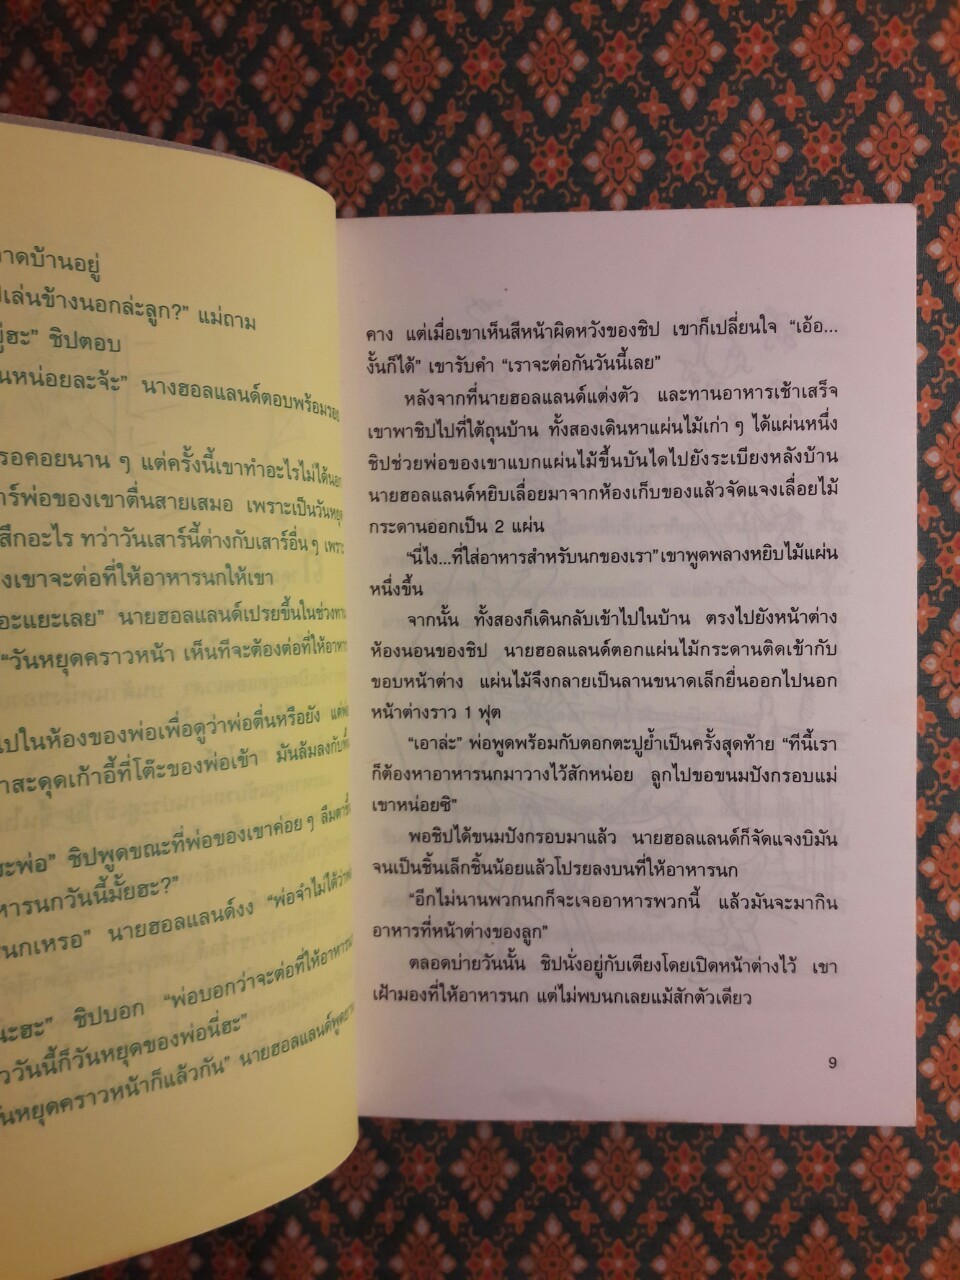 าดบ้านอยู่
ปเล่นข้างนอกล่ะลูก?” แม่ถาม
ยู่ฮะ” ชิปตอบ
นหน่อยละจ้ะ” นางฮอลแลนด์ตอบพร้อมรอย
รอคอยนาน ๆ แต่ครั้งนี้เขาทำอะไรไม่ได้นอก
าร์พ่อของเขาตื่นสายเสมอ เพราะเป็นวันหยุด
สึกอะไร ทว่าวันเสาร์นี้ต่างกับเสาร์อื่น ๆ เพราะ
งเขาจะต่อที่ให้อาหารนกให้เขา
อะแยะเลย” นายฮอลแลนด์เปรยขึ้นในช่วงทาน
“วันหยุดคราวหน้า เห็นทีจะต้องต่อที่ให้อาหาร
ปในห้องของพ่อเพื่อดูว่าพ่อตื่นหรือยัง แต่พอ
าสะดุดเก้าอี้ที่โต๊ะของพ่อเข้า มันล้มลงกับพื้น
ระพ่อ” ชิปพูดขณะที่พ่อของเขาค่อย ๆ ลืมตาขึ้น
หารนกวันนี้มั้ยฮะ?”
นกเหรอ” นายฮอลแลนด์งง “พ่อจำไม่ได้ว่าพ่อ
นะฮะ” ชิปบอก “พ่อบอกว่าจะต่อที่ให้อาหารนก
ววันนี้ก็วันหยุดของพ่อนี่ฮะ”
ันหยุดคราวหน้าก็แล้วกัน” นายฮอลแลนด์พูด
คาง แต่เมื่อเขาเห็นสีหน้าผิดหวังของชิป เขาก็เปลี่ยนใจ “เอ้อ...
งั้นก็ได้” เขารับคำ “เราจะต่อกันวันนี้เลย”
หลังจากที่นายฮอลแลนด์แต่งตัว และทานอาหารเช้าเสร็จ
เขาพาชิปไปที่ใต้ถุนบ้าน ทั้งสองเดินหาแผ่นไม้เก่า ๆ ได้แผ่นหนึ่ง
ชิปช่วยพ่อของเขาแบกแผ่นไม้ขึ้นบันไดไปยังระเบียงหลังบ้าน
นายฮอลแลนด์หยิบเลื่อยมาจากห้องเก็บของแล้วจัดแจงเลื่อยไม้
กระดานออกเป็น 2 แผ่น
“นี่ไง...ที่ใส่อาหารสำหรับนกของเรา” เขาพูดพลางหยิบไม้แผ่น
หนึ่งขึ้น
จากนั้น ทั้งสองก็เดินกลับเข้าไปในบ้าน ตรงไปยังหน้าต่าง
ห้องนอนของชิป นายฮอลแลนด์ตอกแผ่นไม้กระดานติดเข้ากับ
ขอบหน้าต่าง แผ่นไม้จึงกลายเป็นลานขนาดเล็กยื่นออกไปนอก
หน้าต่างราว 1 ฟุต
“เอาล่ะ” พ่อพูดพร้อมกับตอกตะปูย้ำเป็นครั้งสุดท้าย “ทีนี้เรา
ก็ต้องหาอาหารนกมาวางไว้สักหน่อย ลูกไปขอขนมปังกรอบแม่
เขาหน่อยซิ”
พอชิปได้ขนมปังกรอบมาแล้ว นายฮอลแลนด์ก็จัดแจงบิมัน
จนเป็นชิ้นเล็กชิ้นน้อยแล้วโปรยลงบนที่ให้อาหารนก
“อีกไม่นานพวกนกก็จะเจออาหารพวกนี้ แล้วมันจะมากิน
อาหารที่หน้าต่างของลูก”
ตลอดบ่ายวันนั้น ชิปนั่งอยู่กับเตียงโดยเปิดหน้าต่างไว้ เขา
เฝ้ามองที่ให้อาหารนก แต่ไม่พบนกเลยแม้สักตัวเดียว
9